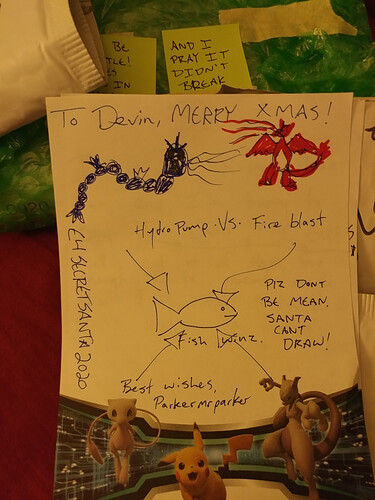 BE
TLE!
ES
IN
AND I
PRAY IT
DIDN'T
BREAK
To Devin, MERRY XMAS!
Hydro Pump .Vs. Fire blast
PLZ DONT
BE MEAN.
SANTA
CANT
DRAW!
Fish winz.
Best wishes,
Parkermrparker
E4 SECRET SANTA 2020